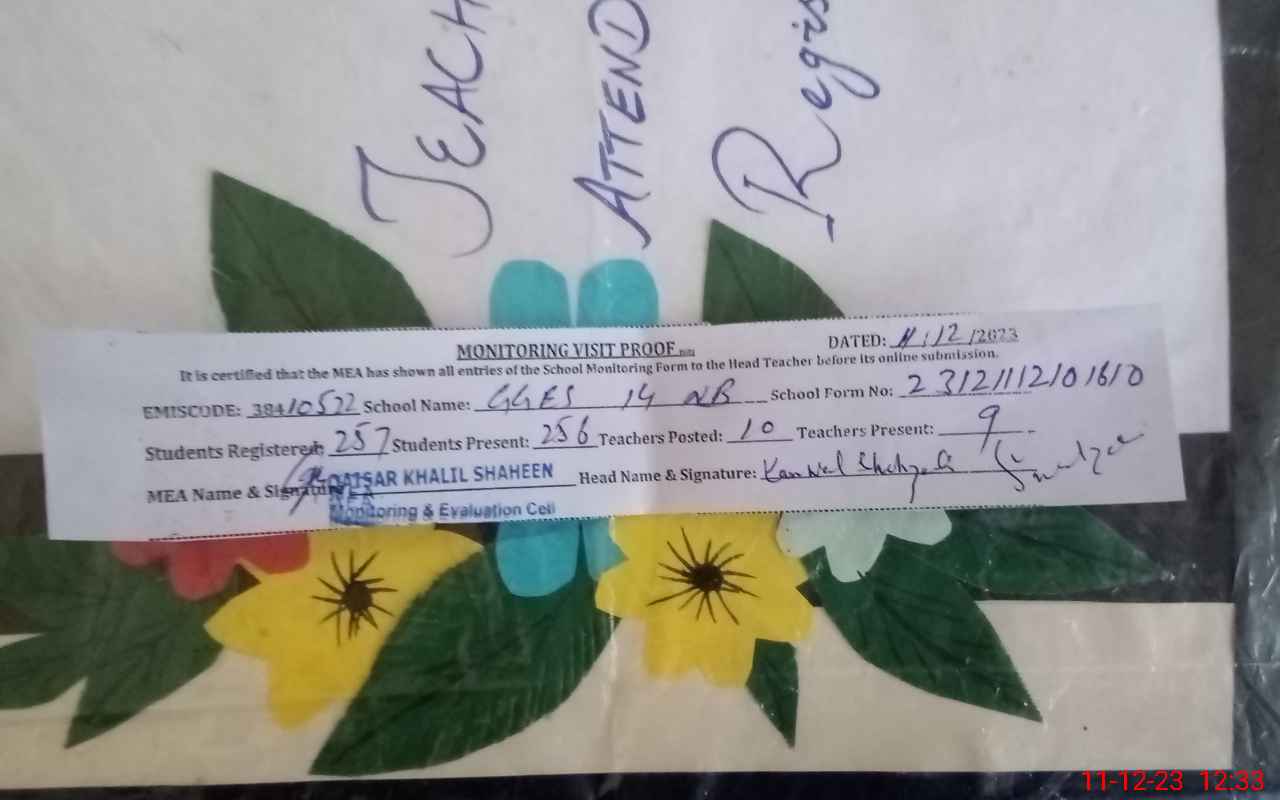 TEACH
ATTEND
Regis
MONITORING VISIT PROOF
DATED: 11:12/2023
It is certified that the MEA has shown all entries of the School Monitoring Form to the Head Teacher before its online submission.
EMISCODE: 38410522 School Name: GGES 14 NB School Form No: 2312111201610
Students Registered: 257 Students Present: 256 Teachers Posted: 10 Teachers Present: 9
MEA Name & Signature: QAISAR KHALIL SHAHEEN Head Name & Signature: Kanwal Shahzadi
MEA
Monitoring & Evaluation Cell
11-12-23 12:33